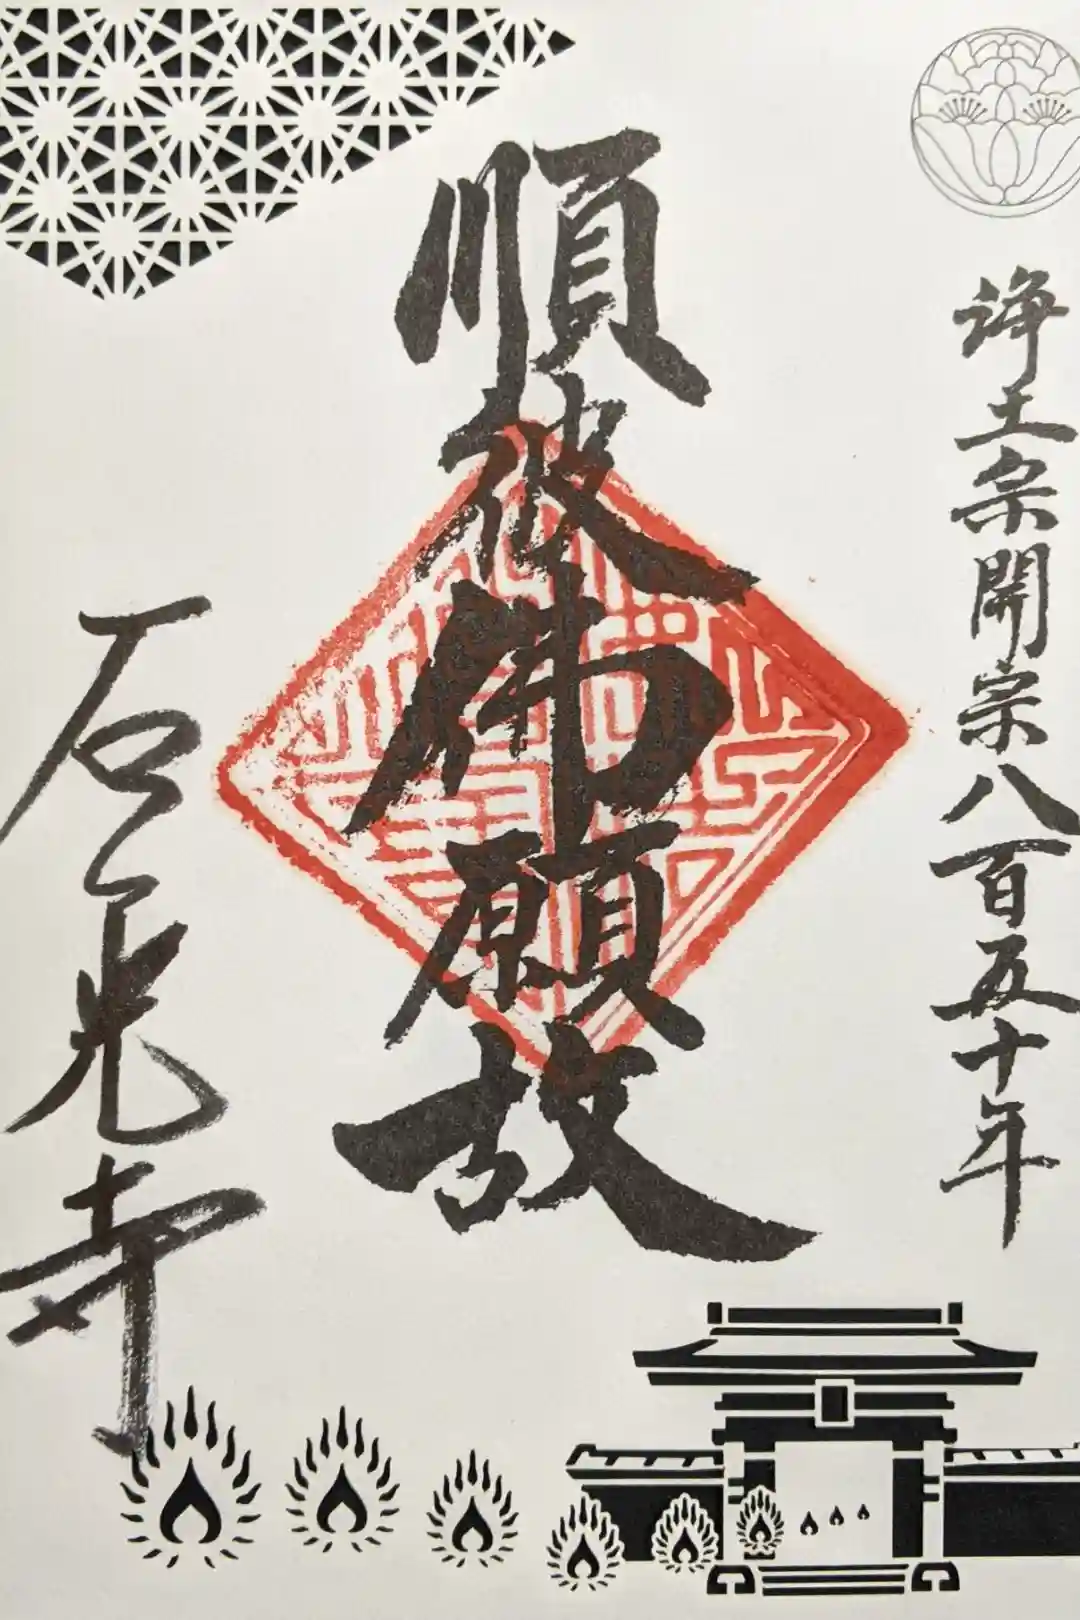 浄土宗開宗八百五十年
順彼佛願故
石光寺